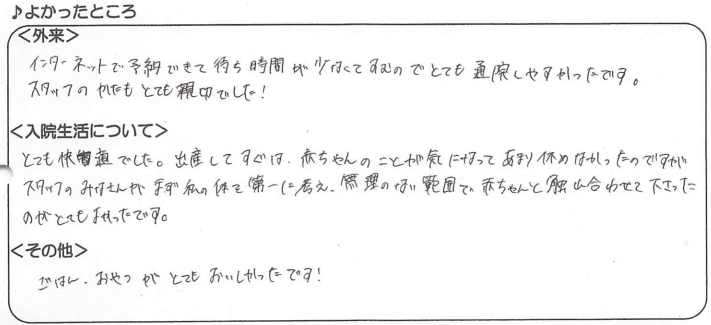 ♪よかったところ
<外来>
インターネットで予約できて待ち時間が少なくてすむのでとても通院しやすかったです。
スタッフのかたもとても親切でした!
<入院生活について>
とても快適でした。出産してすぐは、赤ちゃんのことが気になってあまり休めなかったのですが
スタッフのみなさんがまず私の体を第一に考え、無理のない範囲で赤ちゃんと触れ合わせて下さった
のがとてもよかったです。
<その他>
ごはん、おやつがとてもおいしかったです!